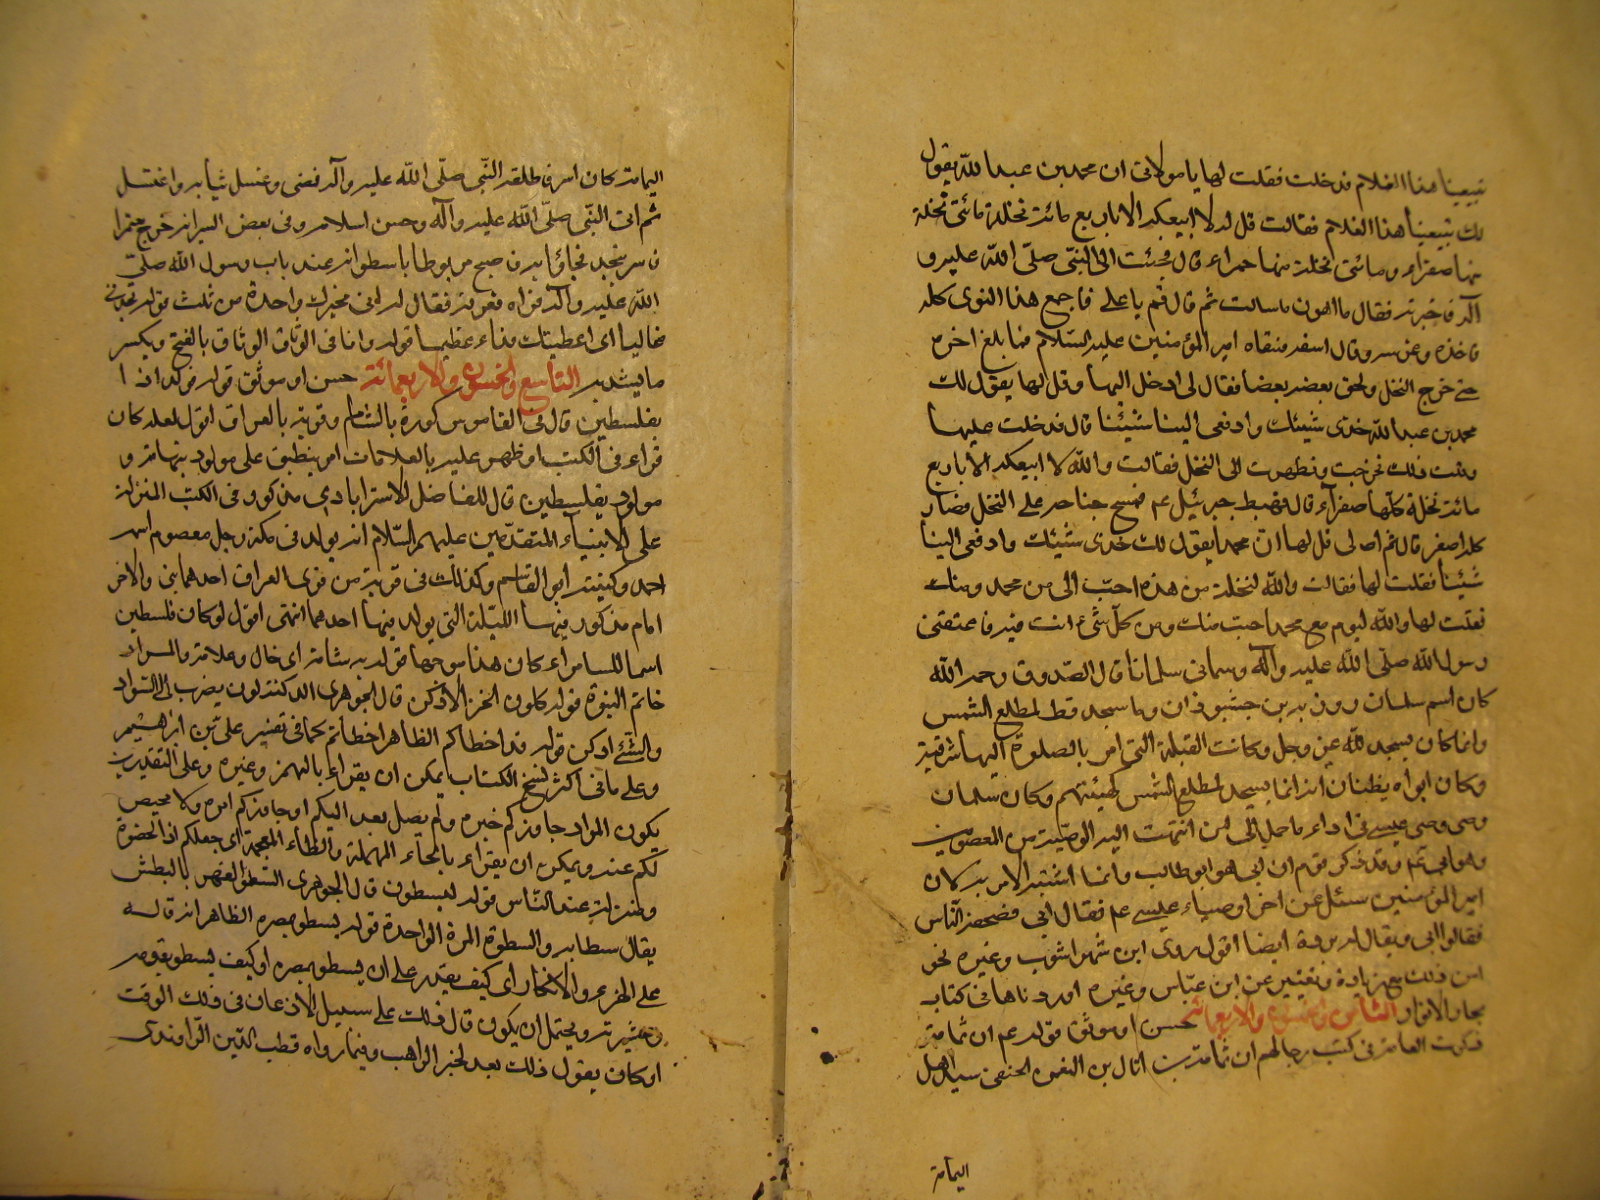 تبيعينا هذا الغلام فدخلت فقلت لها يا مولاتى ان محمد بن عبد الله يقول
لك تبيعينا هذا الغلام فقالت قل له لا ابيعكه الا باربع مائة نخلة مائتى نخلة
منها صفراء ومائتى نخلة منها حمراء قال فجئت الى النبى صلّى الله عليه و
آله فاخبرته فقال ما اهون ما سالت ثم قال قم يا على فاجمع هذا النوى كله
فاخذه وغرسه وقال اسقه فسقاه امير المؤمنين عليه السلام فما بلغ اخره
حتى خرج النخل ولحق بعضه بعضا فقال لى ادخل اليها وقل لها يقول لك
محمد بن عبد الله خذى شيئك وادفعى الينا شيئنا قال فدخلت عليها
وقلت ذلك فخرجت ونظرت الى النخل فقالت والله لا ابيعكه الا باربع
مائة نخلة كلها صفراء قال فهبط جبرئيل عم فمسح جناحه على النخل فصار
كله اصفر قال ثم قال لى قل لها ان محمدا يقول لك خذى شيئك وادفعى الينا
شيئنا فقلت لها فقالت والله لنخلة من هذه احبّ الى من محمد ومنك
فقلت لها والله ليوم مع محمد احب منك ومن كل شىء انت فيه فاعتقنى
رسول الله صلّى الله عليه وآله وسمانى سلمانا قال الصدوق رحمه الله
كان اسم سلمان روزبه بن جشبوذان وما سجد قط لمطلع الشمس
وانما كان يسجد لله عز وجل وكانت القبلة التى امر بالصلوة اليها شرقية
وكان ابواه يظنان انه انما يسجد لمطلع الشمس كهيئتهم وكان سلمان
وصى وصى عيسى فى اداء ما حمل الى من انتهت اليه الوصية من المعصومين
وهو ابى عم وقد ذكر قوم ان ابى هو ابو طالب وانما اشتبه الامر به لان
امير المؤمنين سئل عن اخر اوصياء عيسى عم فقال ابى فصحفه الناس
فقالوا ابى ويقال له برده ايضا اقول روى ابن شهراشوب وغيره نحو
من ذلك مع زيادة وتغيير عن ابن عباس وغيره اوردناها فى كتاب
بحار الانوار الثامن والخمسون والاربعمائة حسن او موثق قوله عم ان ثمامة
ذكرت العامة فى كتب رجالهم ان ثمامة بن اثال بن النعمن الحنفى سيد اهل
اليمامة
اليمامة كان اسر فاطلقه النّبى صلّى الله عليه وآله فمضى وغسل ثيابه واغتسل
ثم اتى النّبى صلّى الله عليه وآله وحسن اسلامه وفى بعض السير انه خرج معتمرا
فاسر بنجد فجاؤا به فاصبح مربوطا باسطوانة عند باب رسول الله صلّى
الله عليه وآله فراه فعرفه فقال له انى مخيرك واحدة من ثلث قوله تجدنى
غاليا اى اعطيتك فداء عظيما قوله وانا فى الوثاق الوثاق بالفتح ويكسر
ما يشد به التاسع والخمسون والاربعمائة حسن او موثق قوله فولد اذا
بفلسطين قال فى القاموس كورة بالشام وقرية بالعراق اقول لعله كان
قراء فى الكتب او ظهر عليه بالعلامات امر ينطبق على مولود بتهامة و
مولود بفلسطين قال الفاضل الاسترابادى مذكور فى الكتب المنزلة
على الانبياء المتقدمين عليهم السّلام انه يولد فى مكة رجل معصوم اسمه
احمد وكنيته ابو القاسم وكذلك فى قرية من قرى العراق احدهما نبى والاخر
امام مذكور فيهما الليلة التى يولد فيها احدهما انتهى اقول لو كان فلسطين
اسما للسامراء كان هذا موجها قوله به شامة اى خال وعلامة والمراد
خاتم النبوة قوله كلون الخز الادكن قال الجوهرى الدكنة لون يضرب الى السّواد
والشئ ادكن قوله قد اخطاكم الظاهر اخطأتم كما فى تفسير على بن ابراهيم
وعلى ما فى اكثر نسخ الكتاب يمكن ان يقراء بالهمز وغيره وعلى التقديرين
يكون المراد جاوزكم خبره ولم يصل بعد اليكم او جاوزكم امره ولا محيص
لكم عنه ويمكن ان يقراء بالحاء المهملة والظاء المعجمة اى جعلكم اذا الحضوة
ومنزلة عند النّاس قوله ليسطون قال الجوهرى السّطو القهر بالبطش
يقال سطا به والسطوة المرة الواحدة قوله يسطو بمصره الظاهر انه قاله
على الهزء والانكار اى كيف يقدر على ان يسطو بمصره او كيف يسطو بقومه
وعشيرته ويحتمل ان يكون قال ذلك على سبيل الاذعان فى ذلك الوقت
او كان يقول ذلك بعد لخبر الراهب وفيما رواه قطب الدّين الرّاوندى